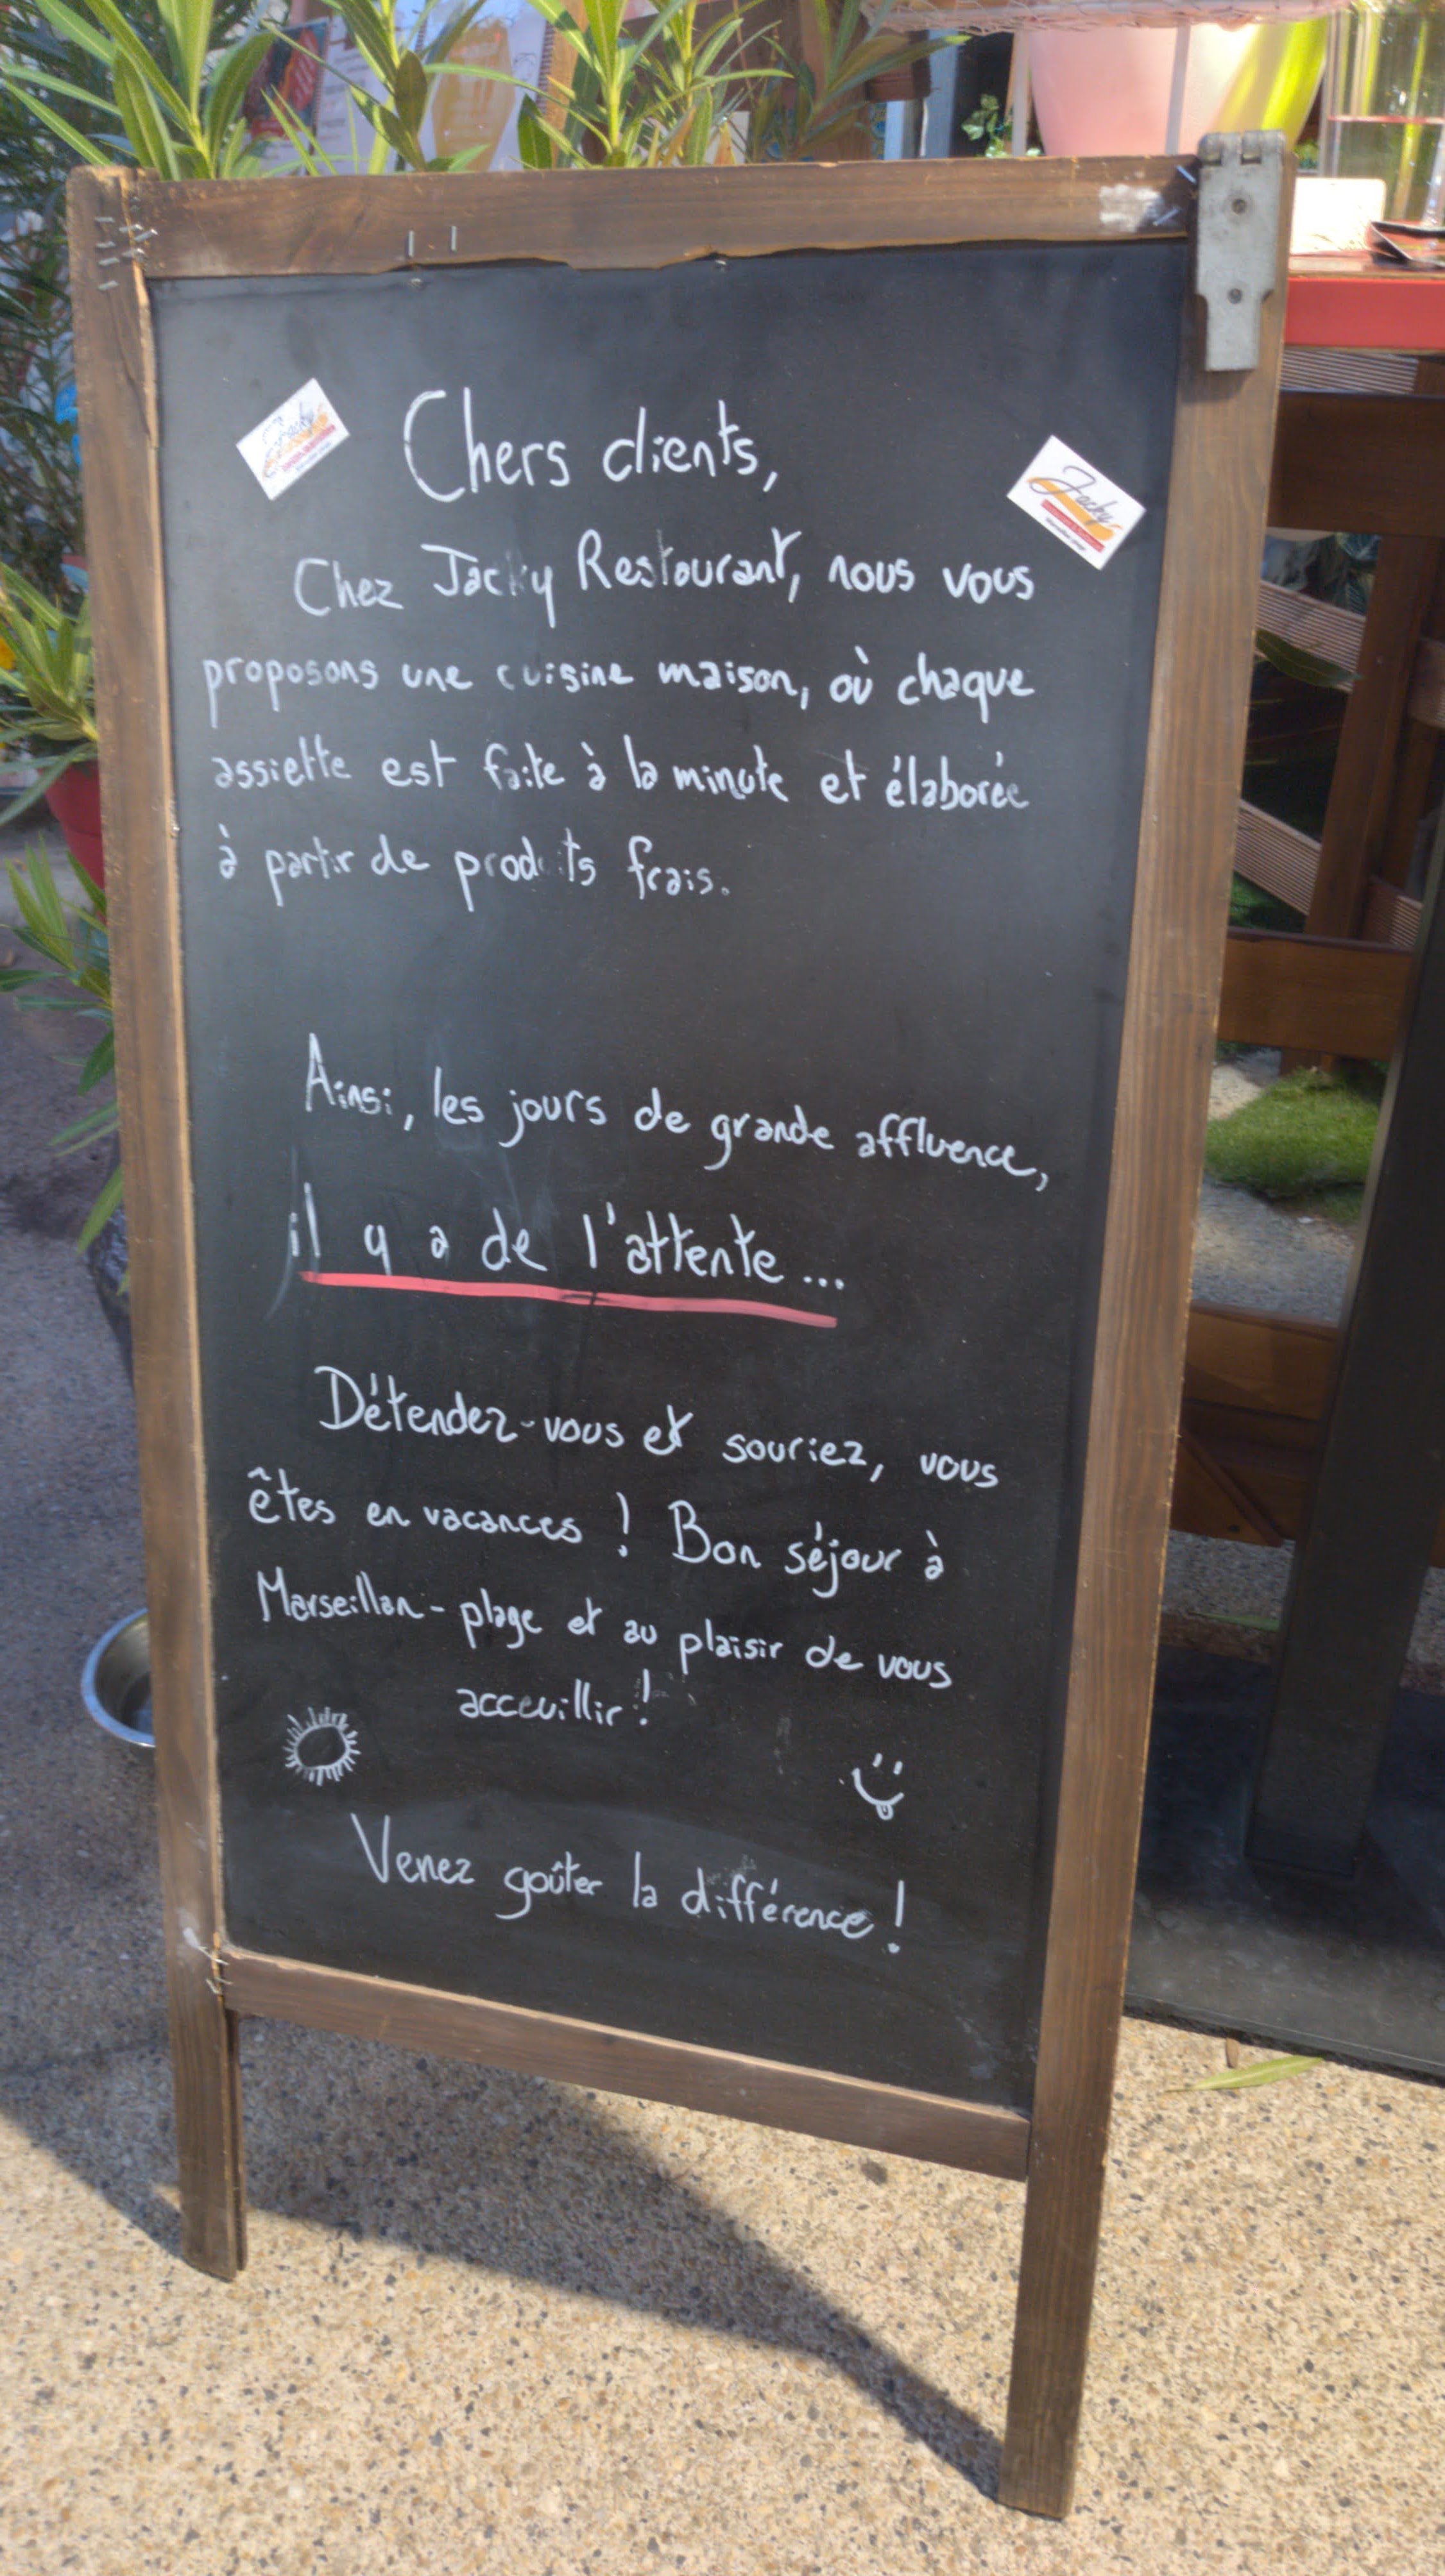 Chers clients,
Chez Jacky Restaurant, nous vous
proposons une cuisine maison, où chaque
assiette est faite à la minute et élaborée
à partir de produits frais.
Ainsi, les jours de grande affluence,
il y a de l'attente...
Détendez-vous et souriez, vous
êtes en vacances ! Bon séjour à
Marseillan-plage et au plaisir de vous
acceuillir !
Venez goûter la différence !
Jacky
Jacky